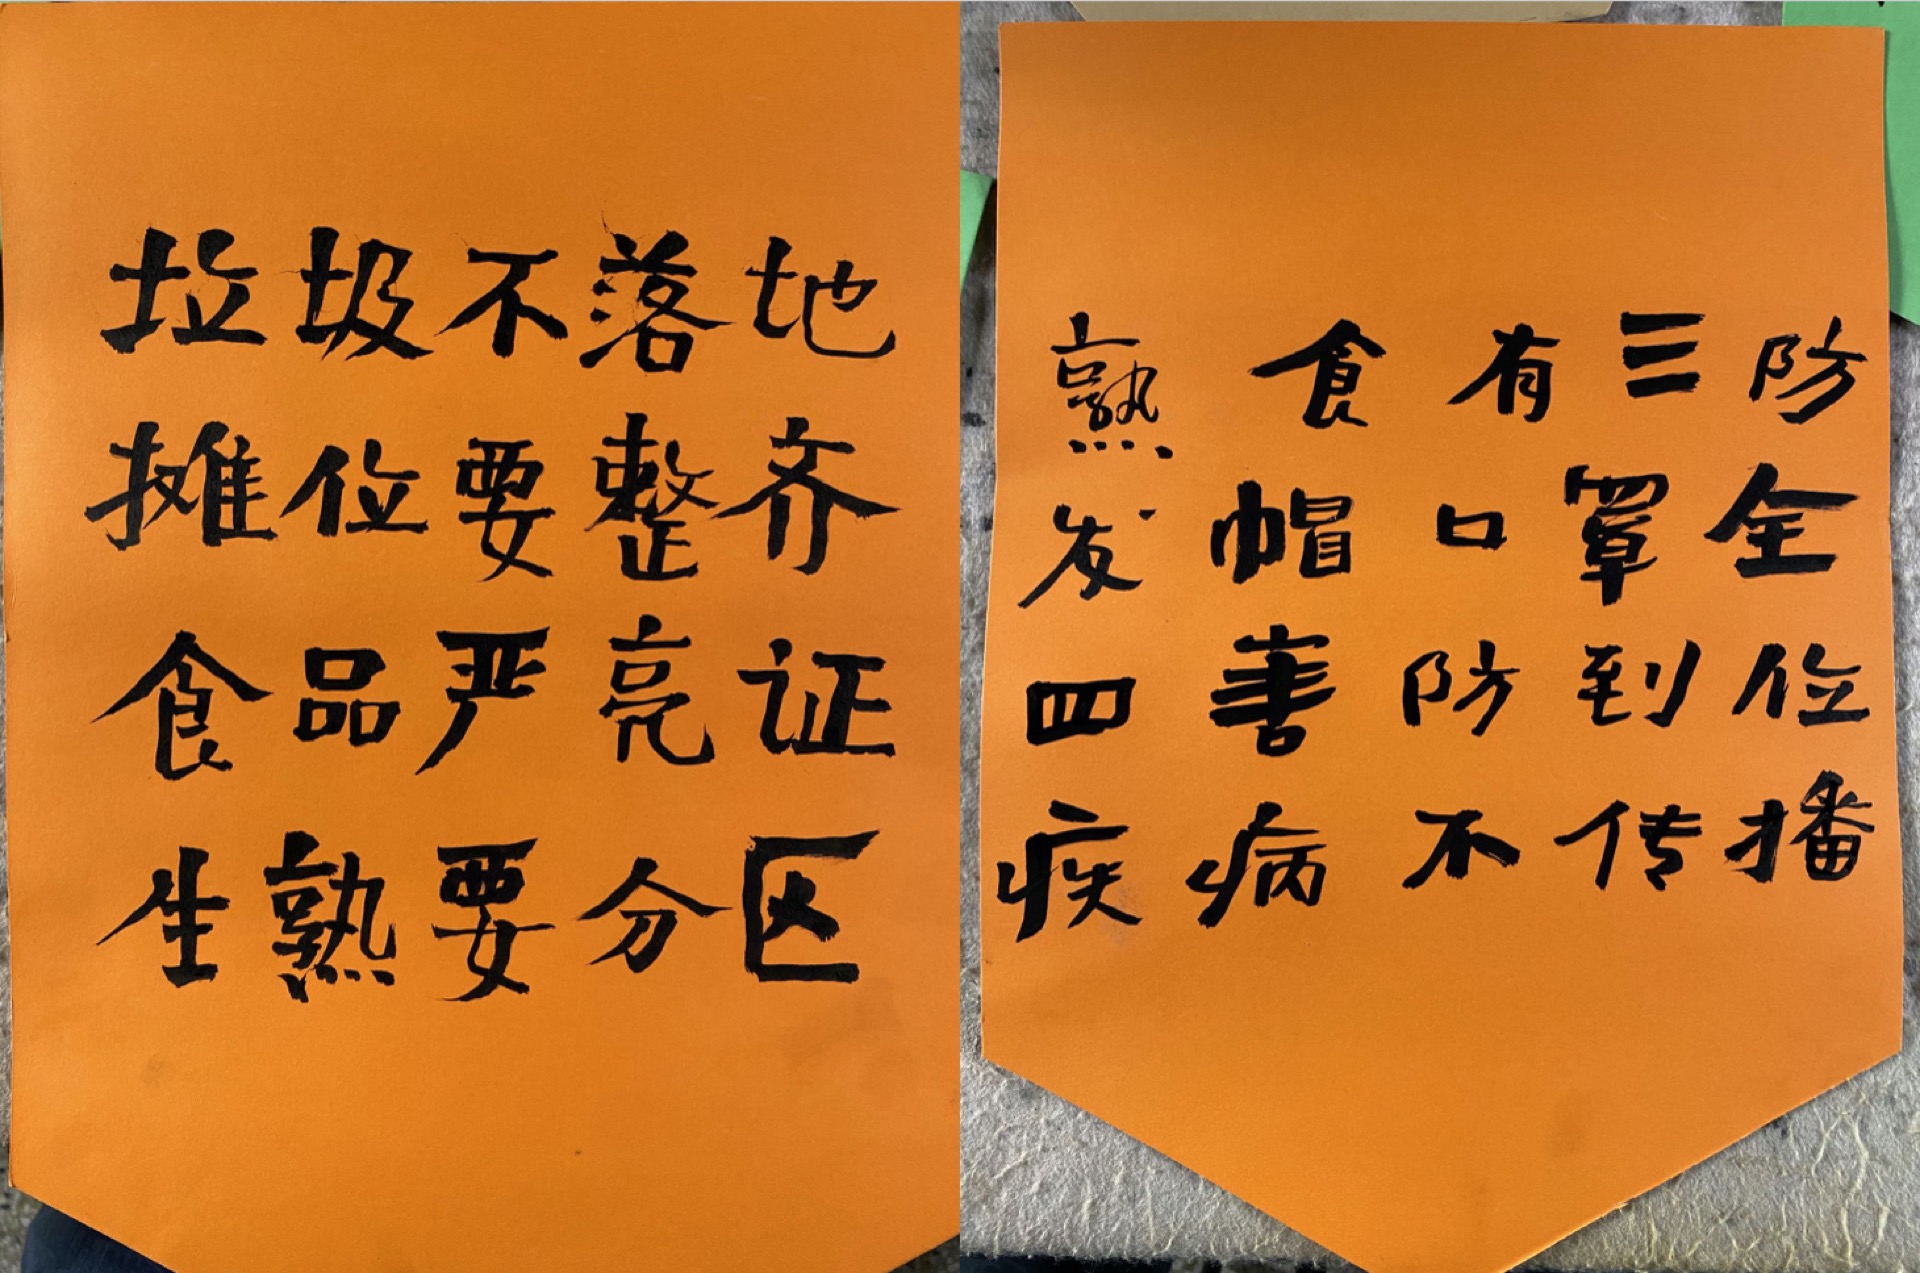 垃圾不落地
摊位要整齐
食品严亮证
生熟要分区
熟食有三防
发帽口罩全
四害防到位
疾病不传播